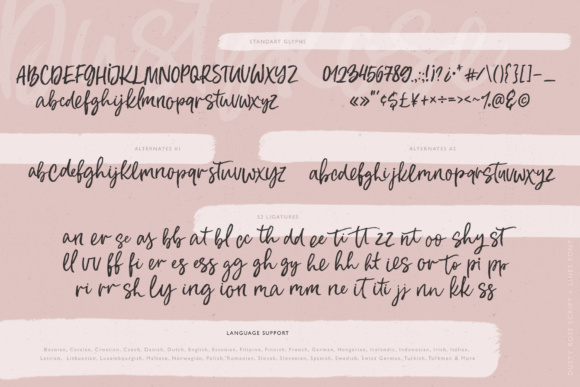 Dusty Rose
STANDART GLYPHS
ABCDEFGHIJKLMNOPQRSTUVWXYZ
abcdefghijklmnopqrstuvwxyz
0123456789.,:;!i?¿·* #/\(){}[]-_
«»"'¢$£¥+×÷=><~%@&©
ALTERNATES 01
abcdefghijklmnopqrstuvwxyz
ALTERNATES 02
abcdefghijklmnopqrstuvwxyz
53 LIGATURES
an er se as bb at bl cc th dd ee ti tt zz nt oo shy st
ll vv ff fi er es ess gg gh gy he hh ht ies or to pi pp
ri rr sh ly ing ion ma mm ne it iti jj nn kk ss
LANGUAGE SUPPORT
Bosnian, Catalan, Croatian, Czech, Danish, Dutch, English, Estonian, Filipino, Finnish, French, German, Hungarian, Icelandic, Indonesian, Irish, Italian,
Latvian, Lithuanian, Luxembourgish, Maltese, Norwegian, Polish, Romanian, Slovak, Slovenian, Spanish, Swedish, Swiss German, Turkish, Turkmen & More
DUSTY ROSE SCRIPT